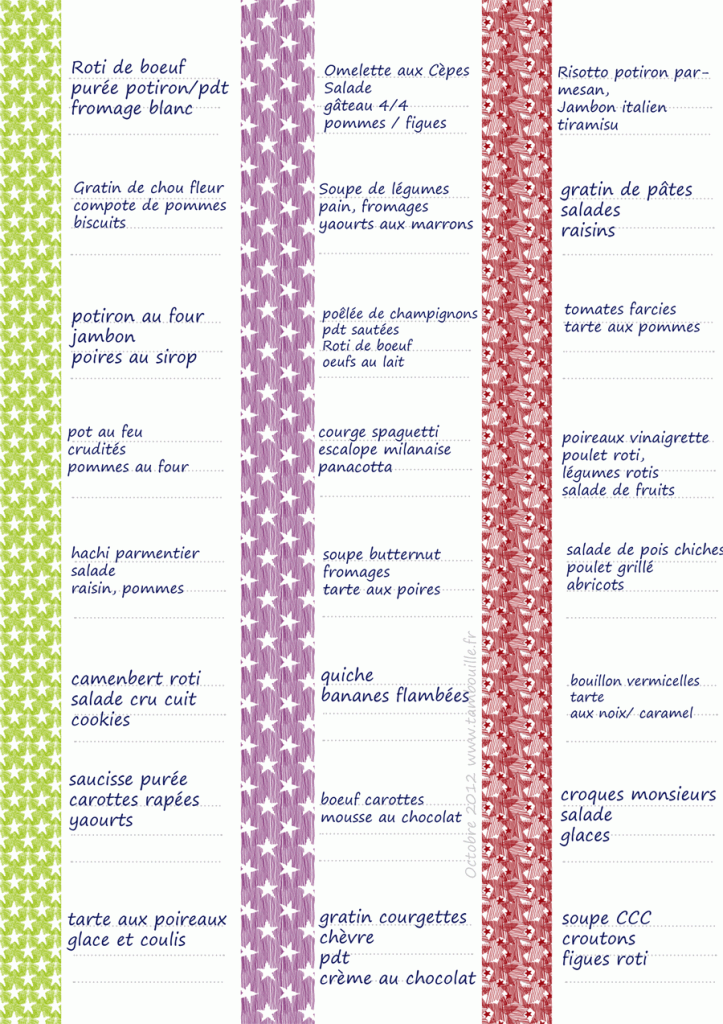 Roti de boeuf
purée potiron/pdt
fromage blanc
Gratin de chou fleur
compote de pommes
biscuits
potiron au four
jambon
poires au sirop
pot au feu
crudités
pommes au four
hachi parmentier
salade
raisin, pommes
camenbert roti
salade cru cuit
cookies
saucisse purée
carottes rapées
yaourts
tarte aux poireaux
glace et coulis
Omelette aux Cèpes
Salade
gâteau 4/4
pommes / figues
Soupe de légumes
pain, fromages
yaourts aux marrons
poêlée de champignons
pdt sautées
Roti de boeuf
oeufs au lait
courge spaguetti
escalope milanaise
panacotta
soupe butternut
fromages
tarte aux poires
quiche
bananes flambées
boeuf carottes
mousse au chocolat
gratin courgettes
chèvre
pdt
crème au chocolat
Octobre 2012 www.tambouille.fr
Risotto potiron par-
mesan,
Jambon italien
tiramisu
gratin de pâtes
salades
raisins
tomates farcies
tarte aux pommes
poireaux vinaigrette
poulet roti,
légumes rotis
salade de fruits
salade de pois chiches
poulet grillé
abricots
bouillon vermicelles
tarte
aux noix/ caramel
croques monsieurs
salade
glaces
soupe CCC
croutons
figues roti